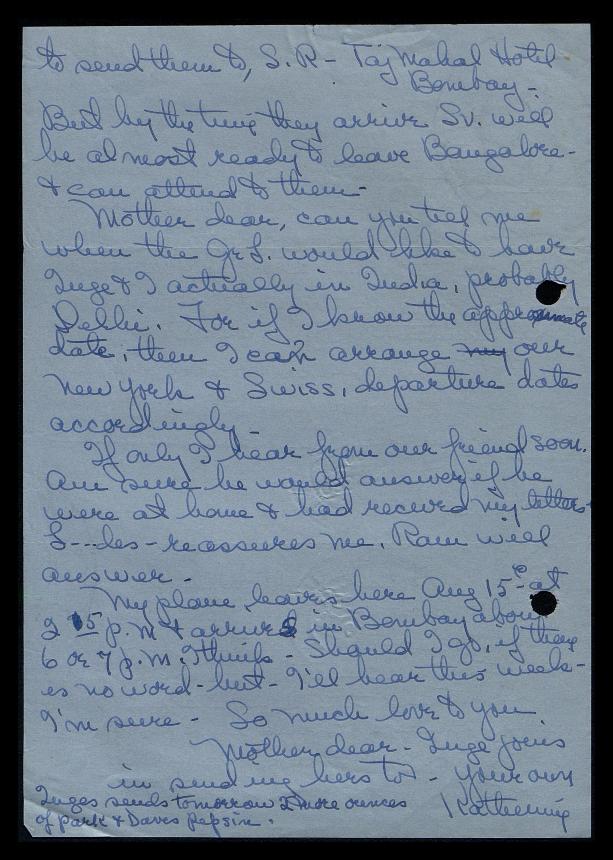 to send them to, S.R - Taj Mahal Hotel
Bombay -
But by the time they arrive Sv. will
be almost ready to leave Bangalore -
& can attend to them -
Mother dear, can you tell me
when the Gr S. would like to have
Inge & I actually in India, probably
Delhi. For if I know the approximate
date, then I can arrange my our
New York & Swiss, departure dates
accordingly -
If only I hear from our friend soon.
Am sure he would answer if he
were at home & had received my letters -
S---les - reassures me. Ram will
answer -
My plane leaves here Aug 15 at
2 15 p.m & arrives in Bombay about
6 or 7 p.m. I think - Should I go, if there
is no word - but - I'll hear this week -
I'm sure - So much love to you
Mother dear - Inge joins
in sending hers to - Your own
Katherine
Inges sends tomorrow 2 more ounces
of Park & Daves Pepsin.